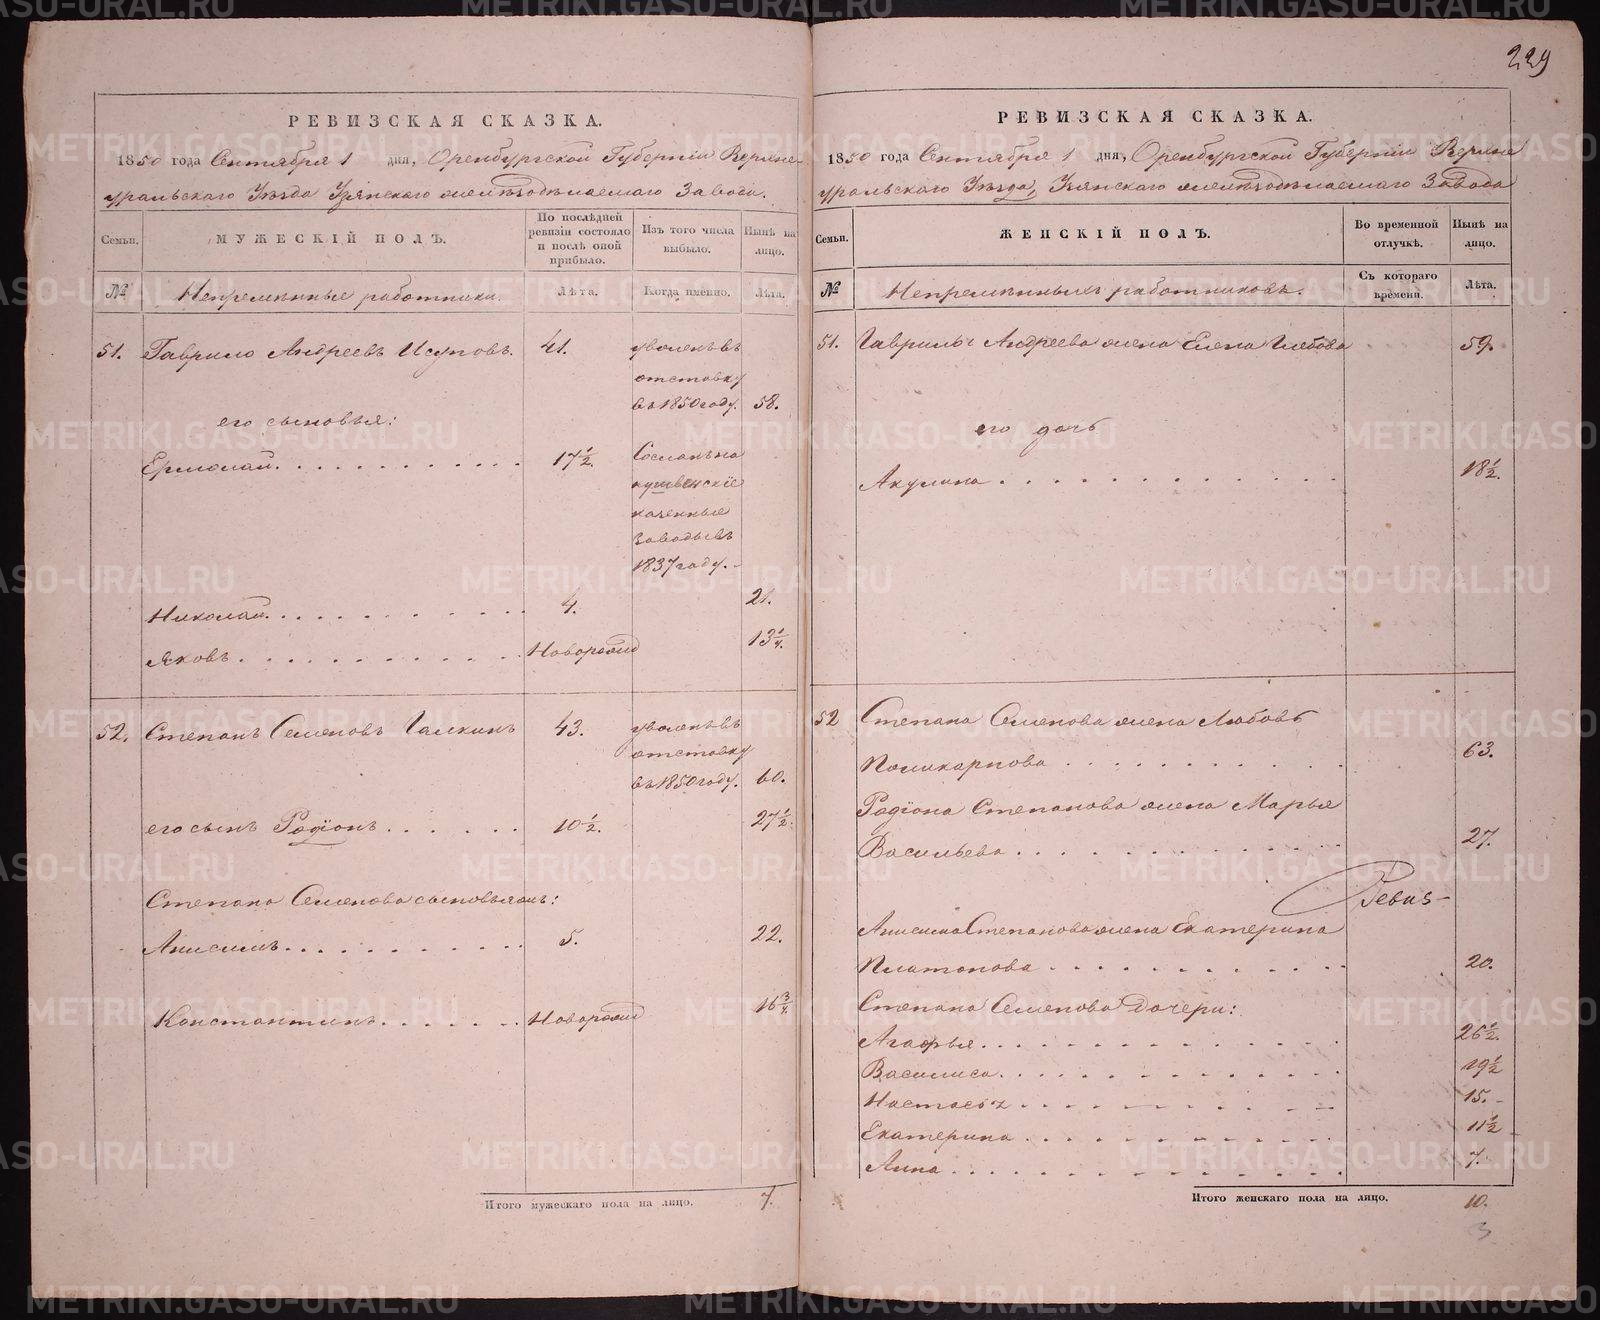 229
РЕВИЗСКАЯ СКАЗКА.
1850 года Сентября 1 дня, Оренбургской Губерніи Верхне-
уральскаго Уѣзда Узянскаго желѣзодѣлаемаго Завода.
Семьи.
МУЖЕСКІЙ ПОЛЪ.
По послѣдней
ревизіи состояло
и послѣ оной
прибыло.
Изъ того числа
выбыло.
Нынѣ на
лицо.
№
Непремѣнные работники.
Лѣта.
Когда именно.
Лѣта.
51. Гаврило Андреевъ Исуповъ. 41. уволенъ въ
отставку
въ 1850 году. 58.
его сыновья:
Ермолай. 17 1/2. Сосланъ на
кушвенскіе
казенные
заводы въ
1837 году.
Николай. 4. 21.
Яковъ. Новорожд 13 1/4.
52. Степанъ Семеновъ Галкинъ 43. уволенъ въ
отставку
въ 1850 году. 60.
его сынъ Радіонъ. 10 1/2. 27 1/2.
Степана Семенова сыновья:
Анисимъ. 5. 22.
Константинъ. Новорожд 16 3/4
Итого мужескаго пола на лицо. 7.
РЕВИЗСКАЯ СКАЗКА.
1850 года Сентября 1 дня, Оренбургской Губерніи Верхне
уральскаго Уѣзда, Узянскаго желѣзодѣлаемаго Завода
Семьи.
ЖЕНСКІЙ ПОЛЪ.
Во временной
отлучкѣ.
Нынѣ на
лицо.
№
Непремѣнныхъ работниковъ.
Съ котораго
времени.
Лѣта.
51. Гаврилы Андреева жена Елена Глебова 59.
его дочь
Акулина 18 1/2.
52 Степана Семенова жена Любовь
Поликарпова 63.
Радіона Степанова жена Марья
Васильева 27.
Ревиз-
Анисима Степанова жена Екатерина
Платонова 20.
Степана Семенова Дочери:
Агафья. 26 1/2.
Василиса. 19 1/2
Настасья 15.
Екатерина 11 1/2
Анна 7.
Итого женскаго пола на лицо. 10.
3
METRIKI.GASO-URAL.RU